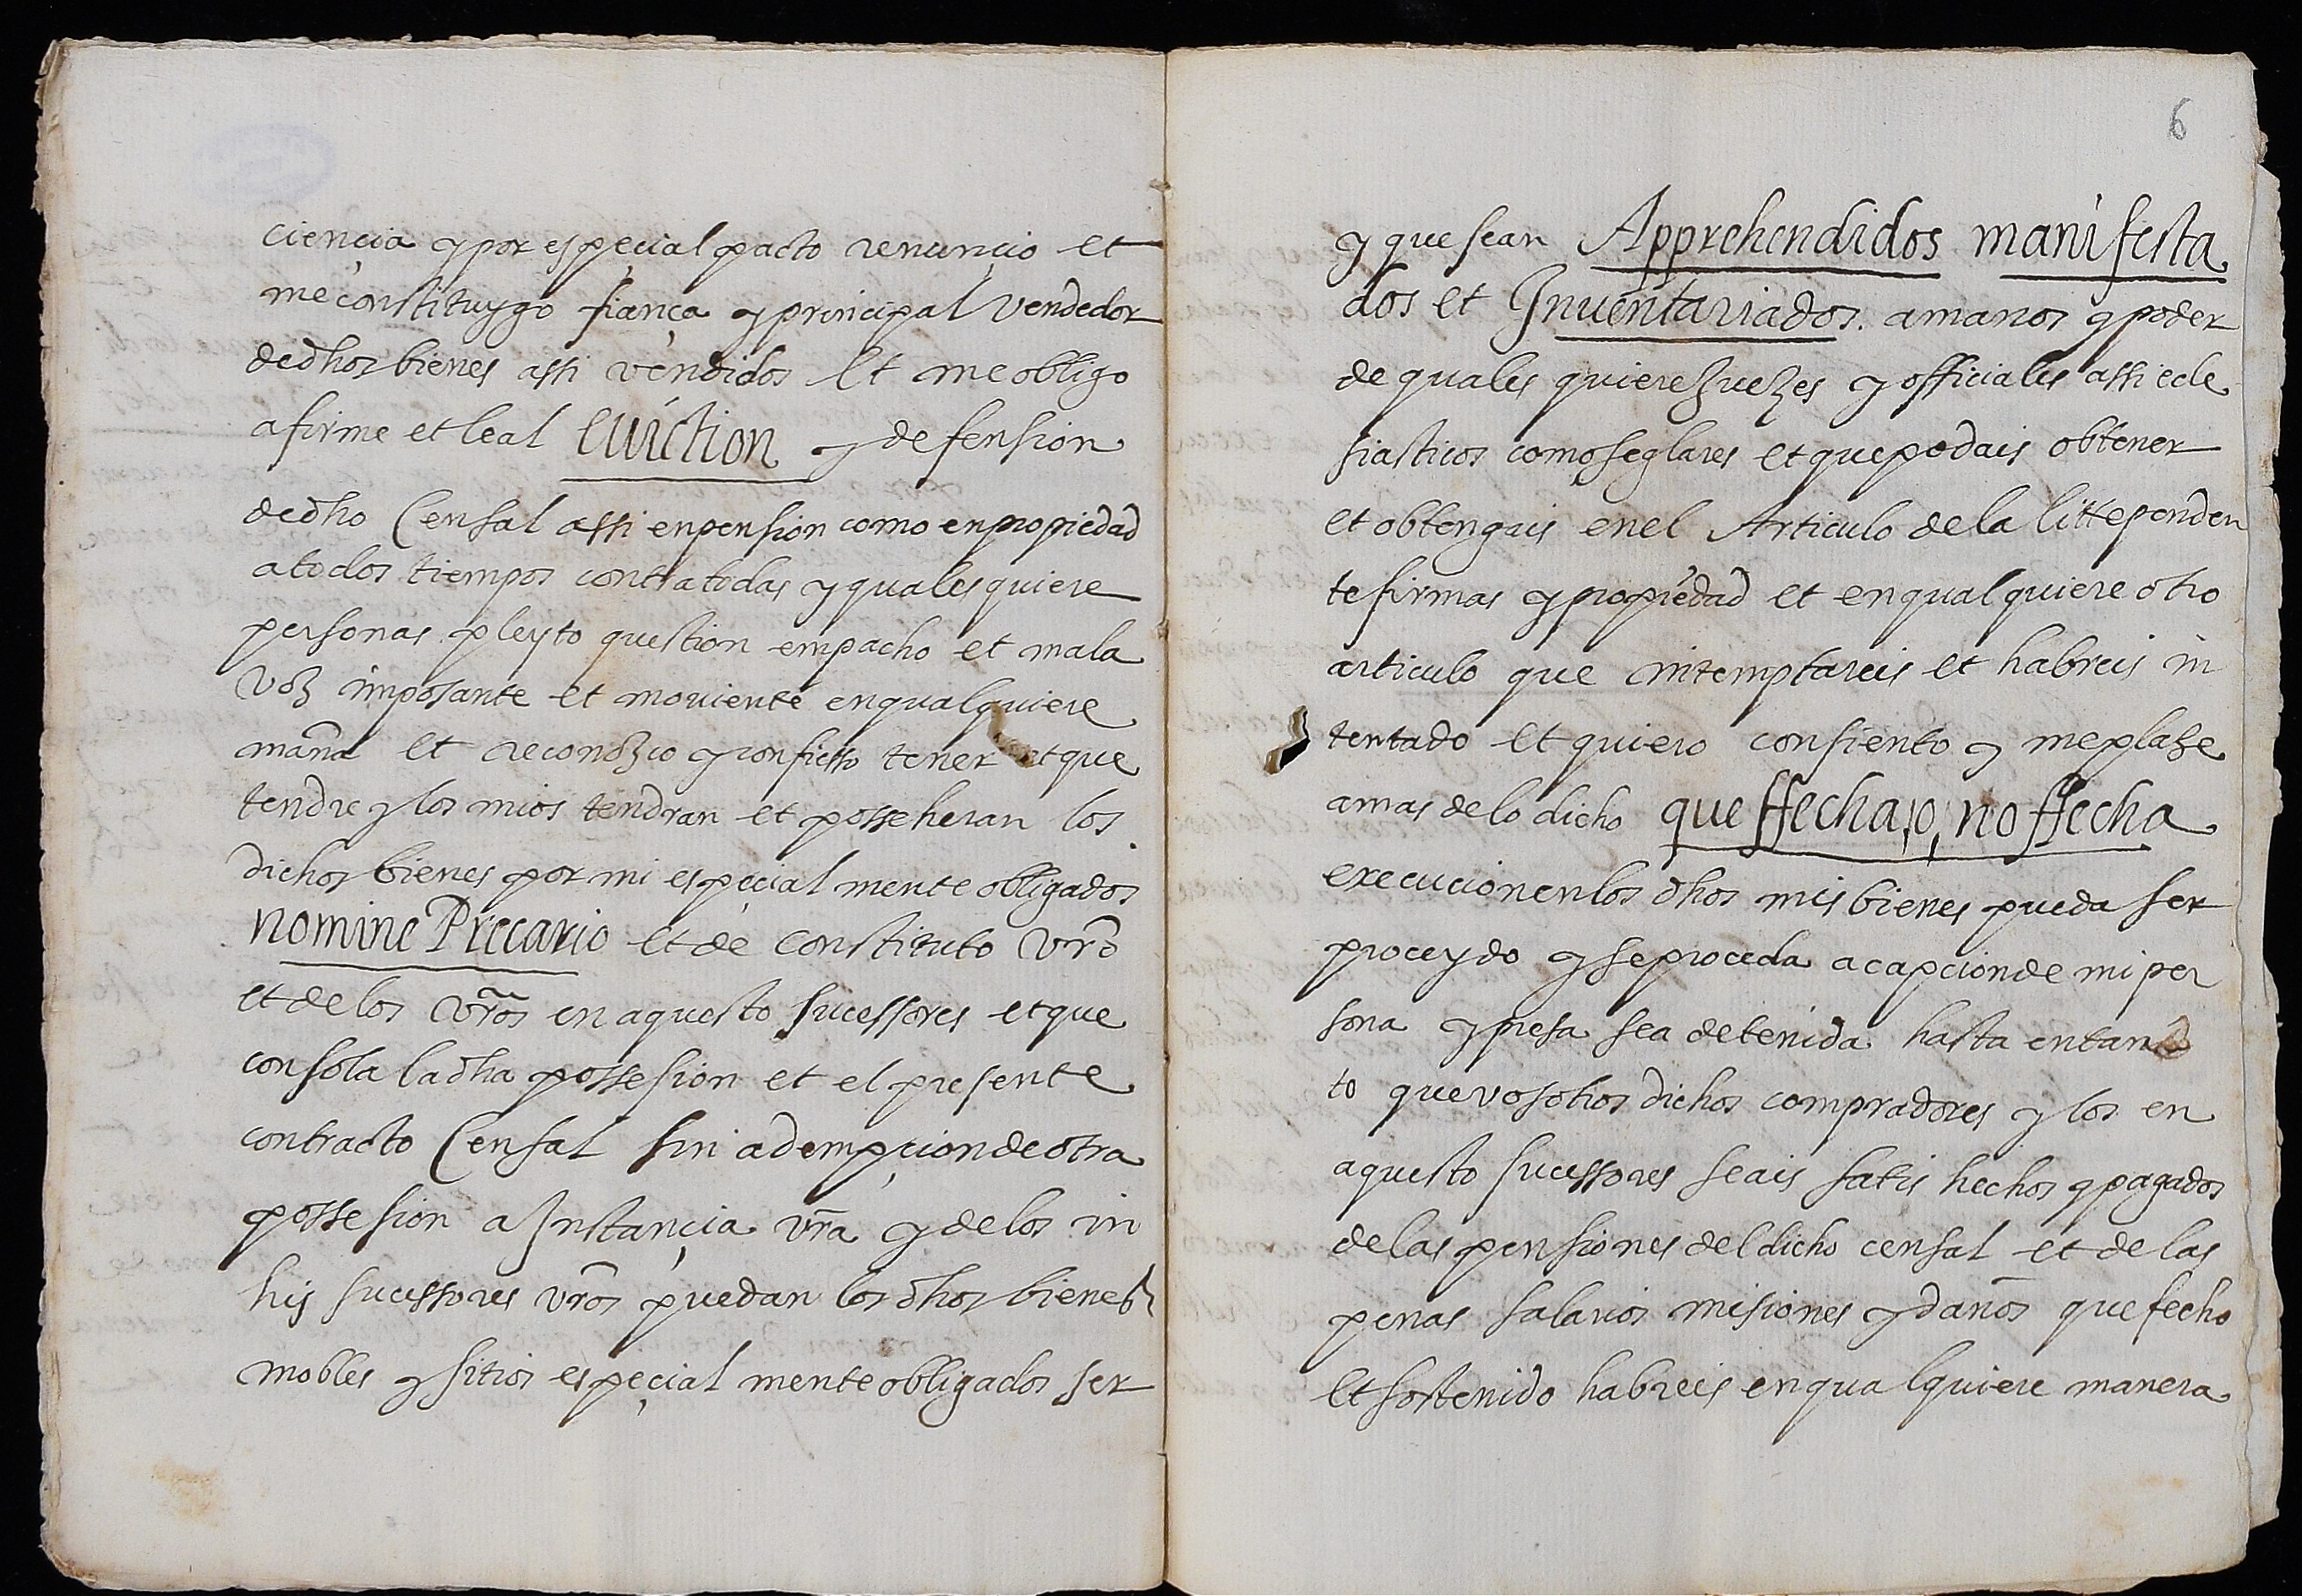 ciençia y por espeçial pacto renunçio et
me constituygo fiança y principal vendedor
de dhos bienes assi vendidos et me obligo
a firme et leal euiction y defension
de dho Censal assi en pension como en propiedad
a todos tiempos contra todas y quales quiere
personas pleyto question empacho et mala
voz imposante et mouiente en qualquiere
mañra et reconozco y confiesso tener et que
tendre y los mios tendran et posseheran los
dichos bienes por mi espeçial mente obligados
nomine Precario et de constituto vrõ
et de los vrõs en aquesto sucessores et que
con sola la dha possesion et el presente
contracto Censal sin adempçion de otra
possesion a Instançia vrã y de los in
his sucessores vrõs puedan los dhos bienes
mobles y sitios espeçial mente obligados ser
6
y que sean Apprehendidos manifesta
dos et Inuentariados. a manos y poder
de quales quiere Juezes y officiales assi ecle
siasticos como seglares et que podais obtener
et obtengais en el Articulo de la littependen
te firmas y propiedad et en qual quiere otro
articulo que intemptareis et habreis in
tentado et quiero consiento y me plaze
a mas de lo dicho que ffecha, o, no ffecha
execucion en los dhos mis bienes pueda ser
proceydo y se proceda a capcion de mi per
sona y presa sea detenida hasta en tan
to que vosotros dichos compradores y los en
aquesto sucessores seais satis hechos y pagados
de las pensiones del dicho censal et de las
penas salarios misiones y daños que fecho
et sostenido habreis en qualquiere manera